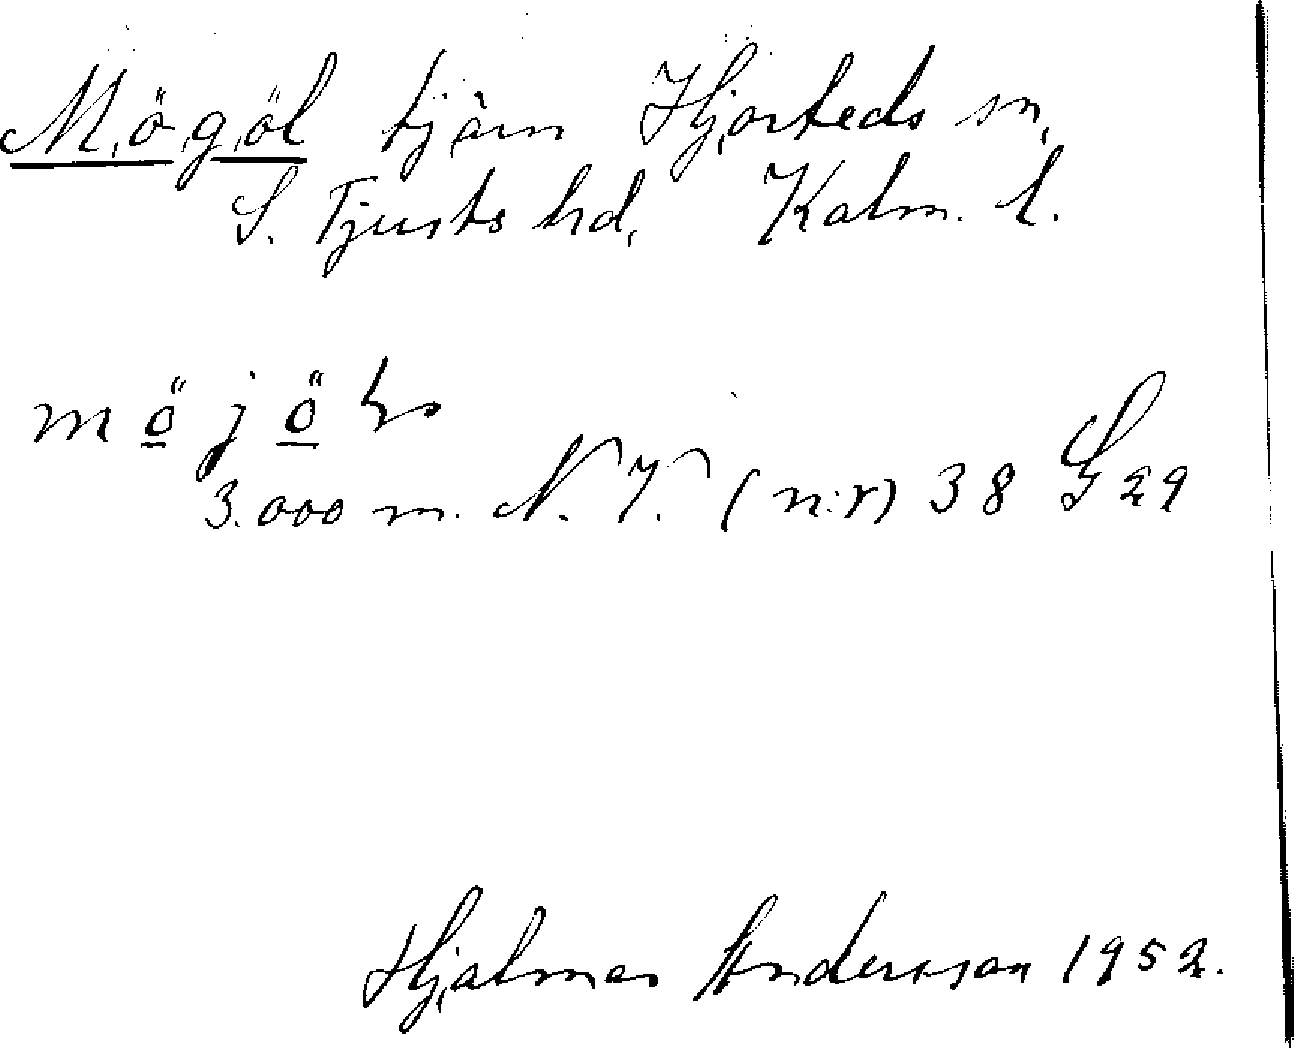 Mögöl tjärn Hjorteds sn,
S. Tjusts hd, Kalm. l.
möjö
3.000 m. N. V. (n:r) 38 G 29
Hjalmar Andersson 1952.